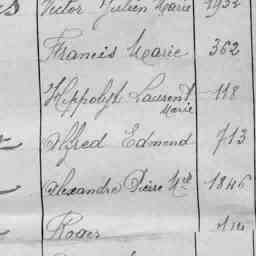 Victor Julien Marie 1932
Francis Marie 362
Hippolyte Laurent 118
Marie
Alfred Edmond 713
Alexandre Pierre Mie 1846
Roger